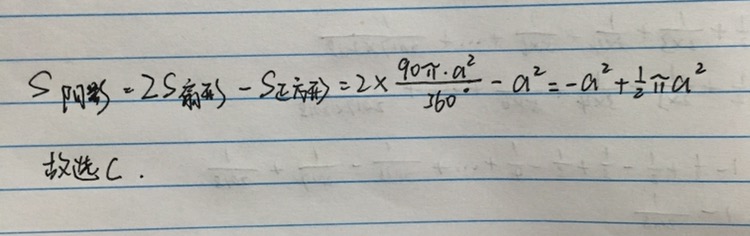 S阴影=2S扇形-S正方形=2×\frac{90π·a²}{360°}-a²=-a²+\frac{1}{2}πa²
故选C.